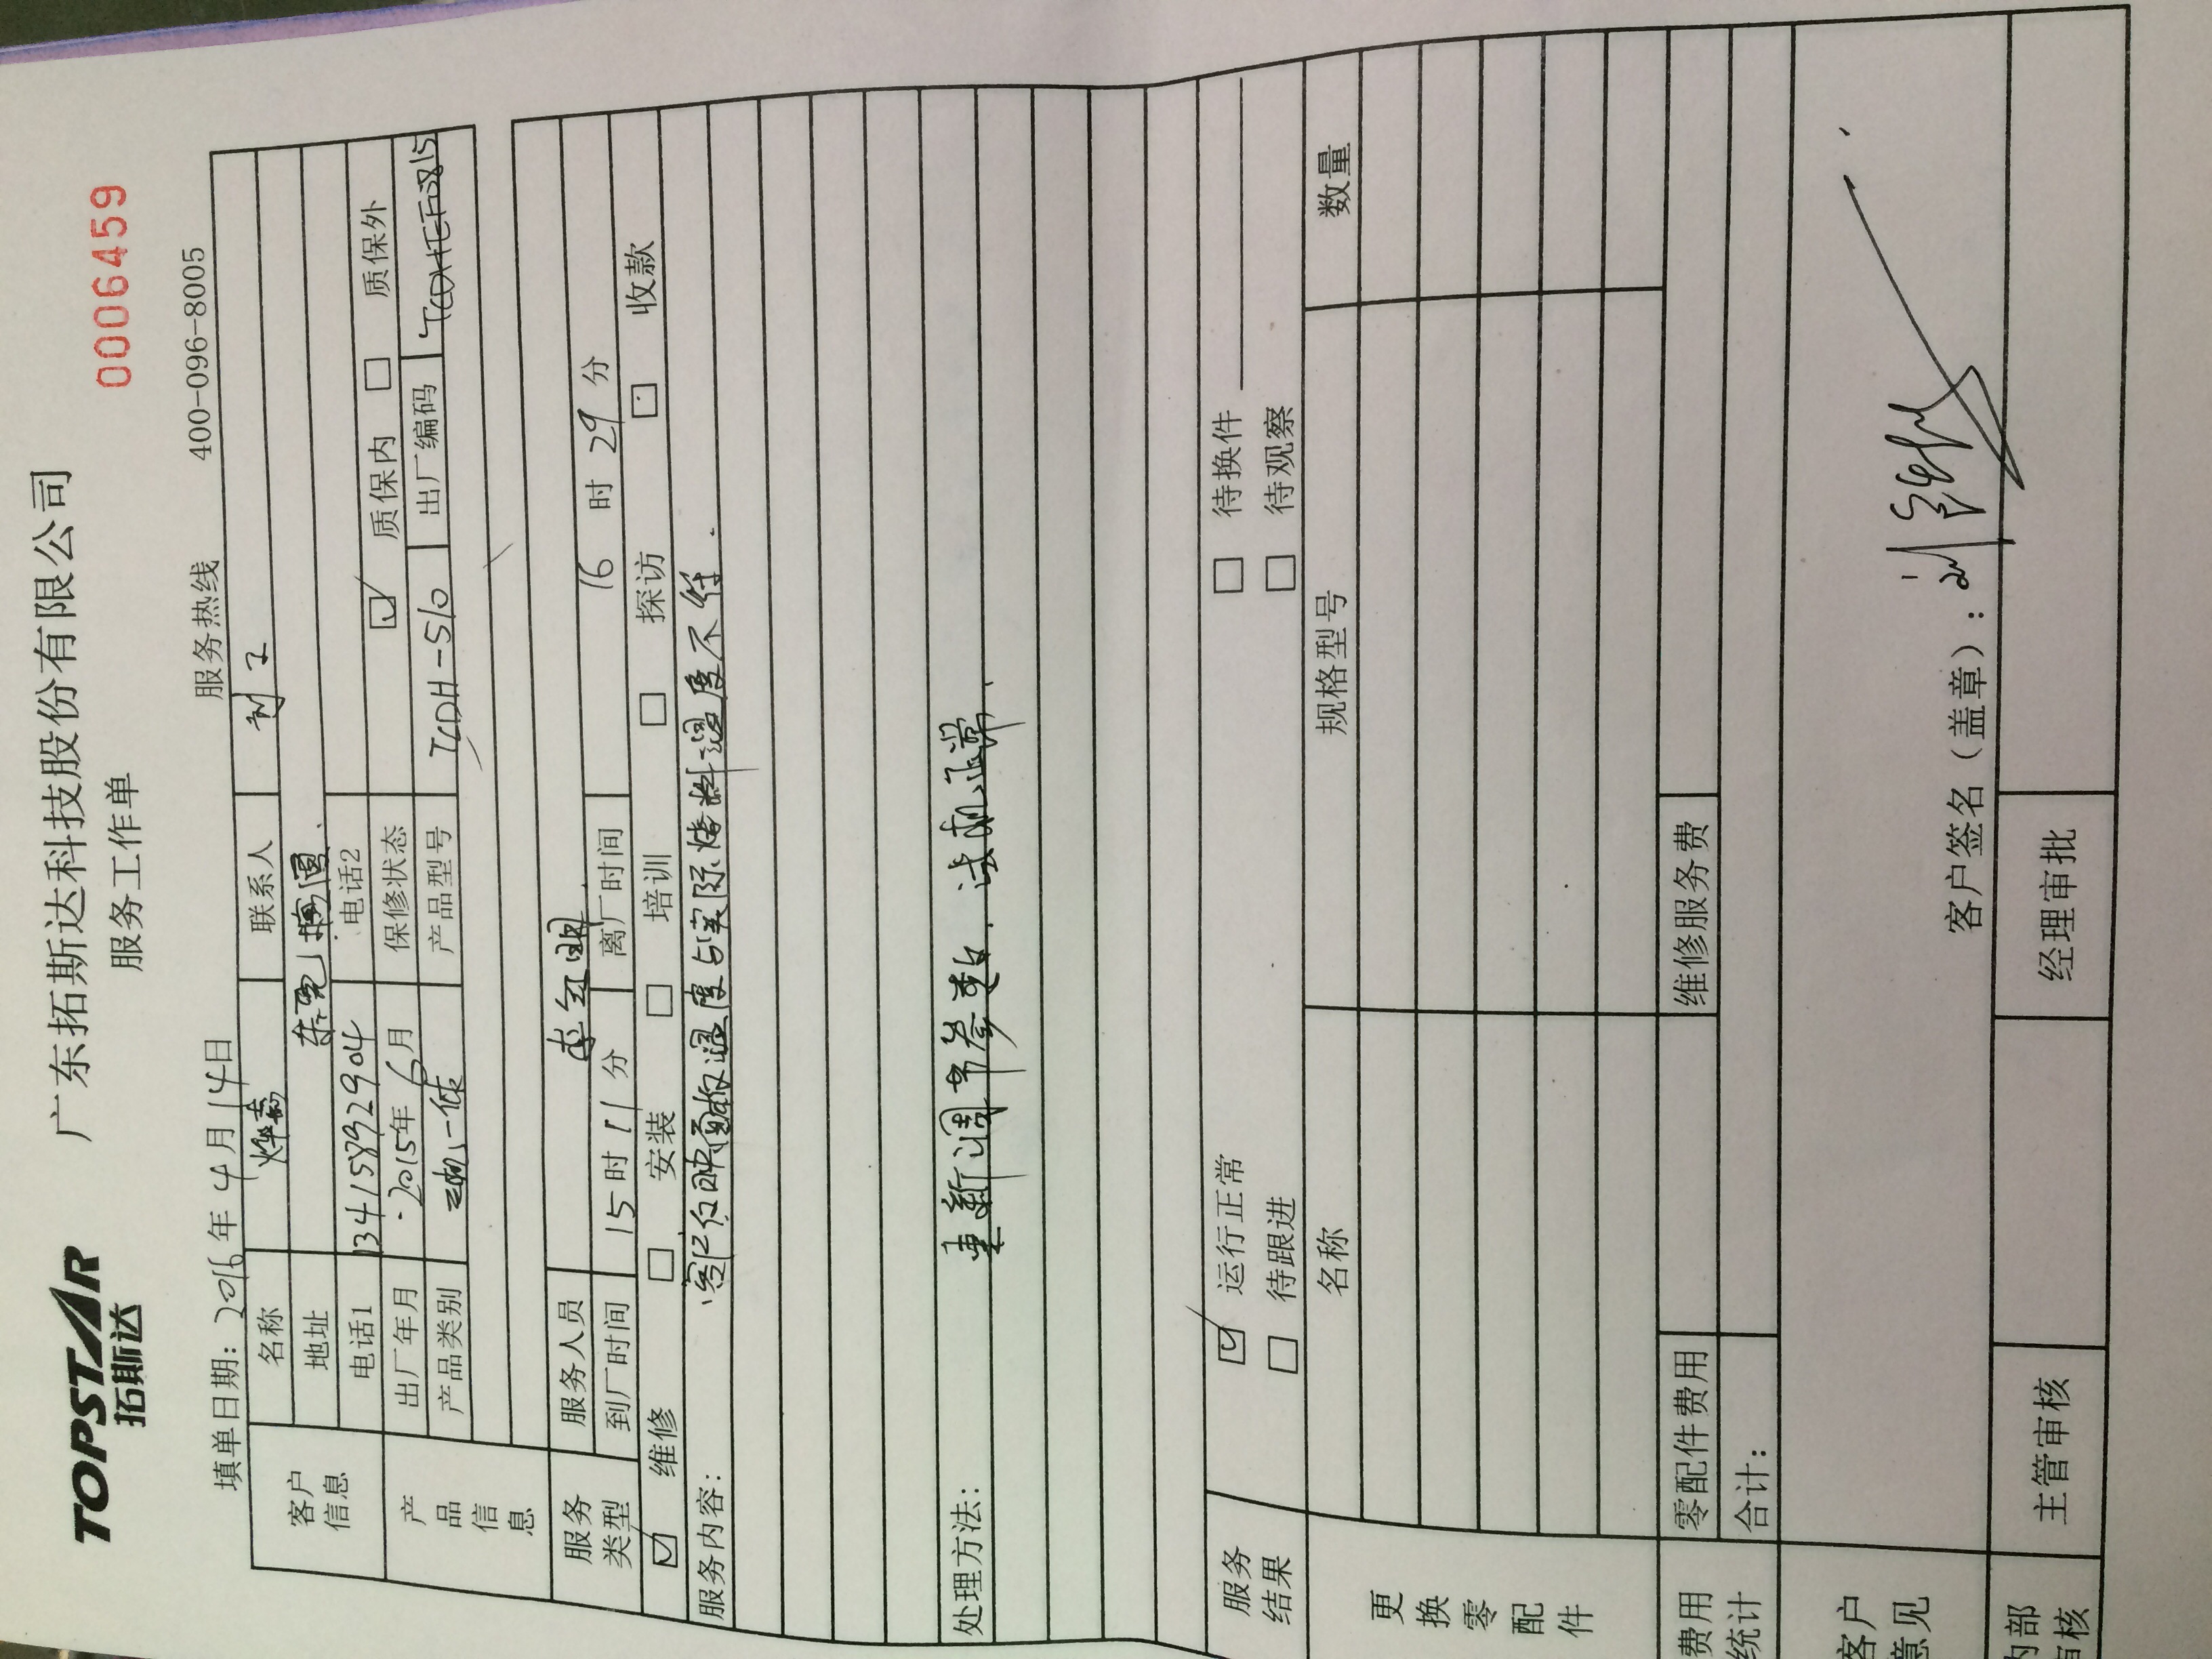 TOPSTAR
拓斯达
广东拓斯达科技股份有限公司
服务工作单
0006459
填单日期：2016年4月14日
服务热线 400-096-8005
客户信息
名称 烨嘉 联系人 刘工
地址 东莞
电话1 13415892904 电话2
产品信息
出厂年月 2015年6月 保修状态 质保内 质保外
产品类别 三机一体 产品型号 TCDH-510 出厂编码
服务人员
服务类型
到厂时间 15时11分 离厂时间 16时29分
维修 安装 培训 探访 收款
服务内容：
面板温度与实际烤料温度不符.
处理方法：
重新调节参数.试机正常.
服务结果
运行正常 待换件
待跟进 待观察
更换零配件
名称 规格型号 数量
费用统计
零配件费用 维修服务费
合计：
客户意见
客户签名（盖章）：
内部审核
主管审核 经理审批